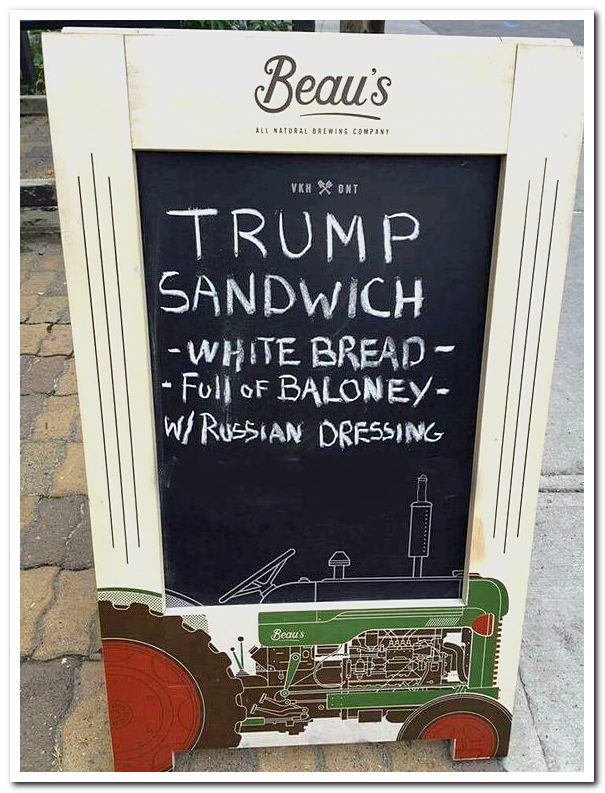 Beau's
ALL NATURAL BREWING COMPANY
VKH ONT
TRUMP
SANDWICH
-WHITE BREAD-
-FULL OF BALONEY-
W/ RUSSIAN DRESSING
Beau's